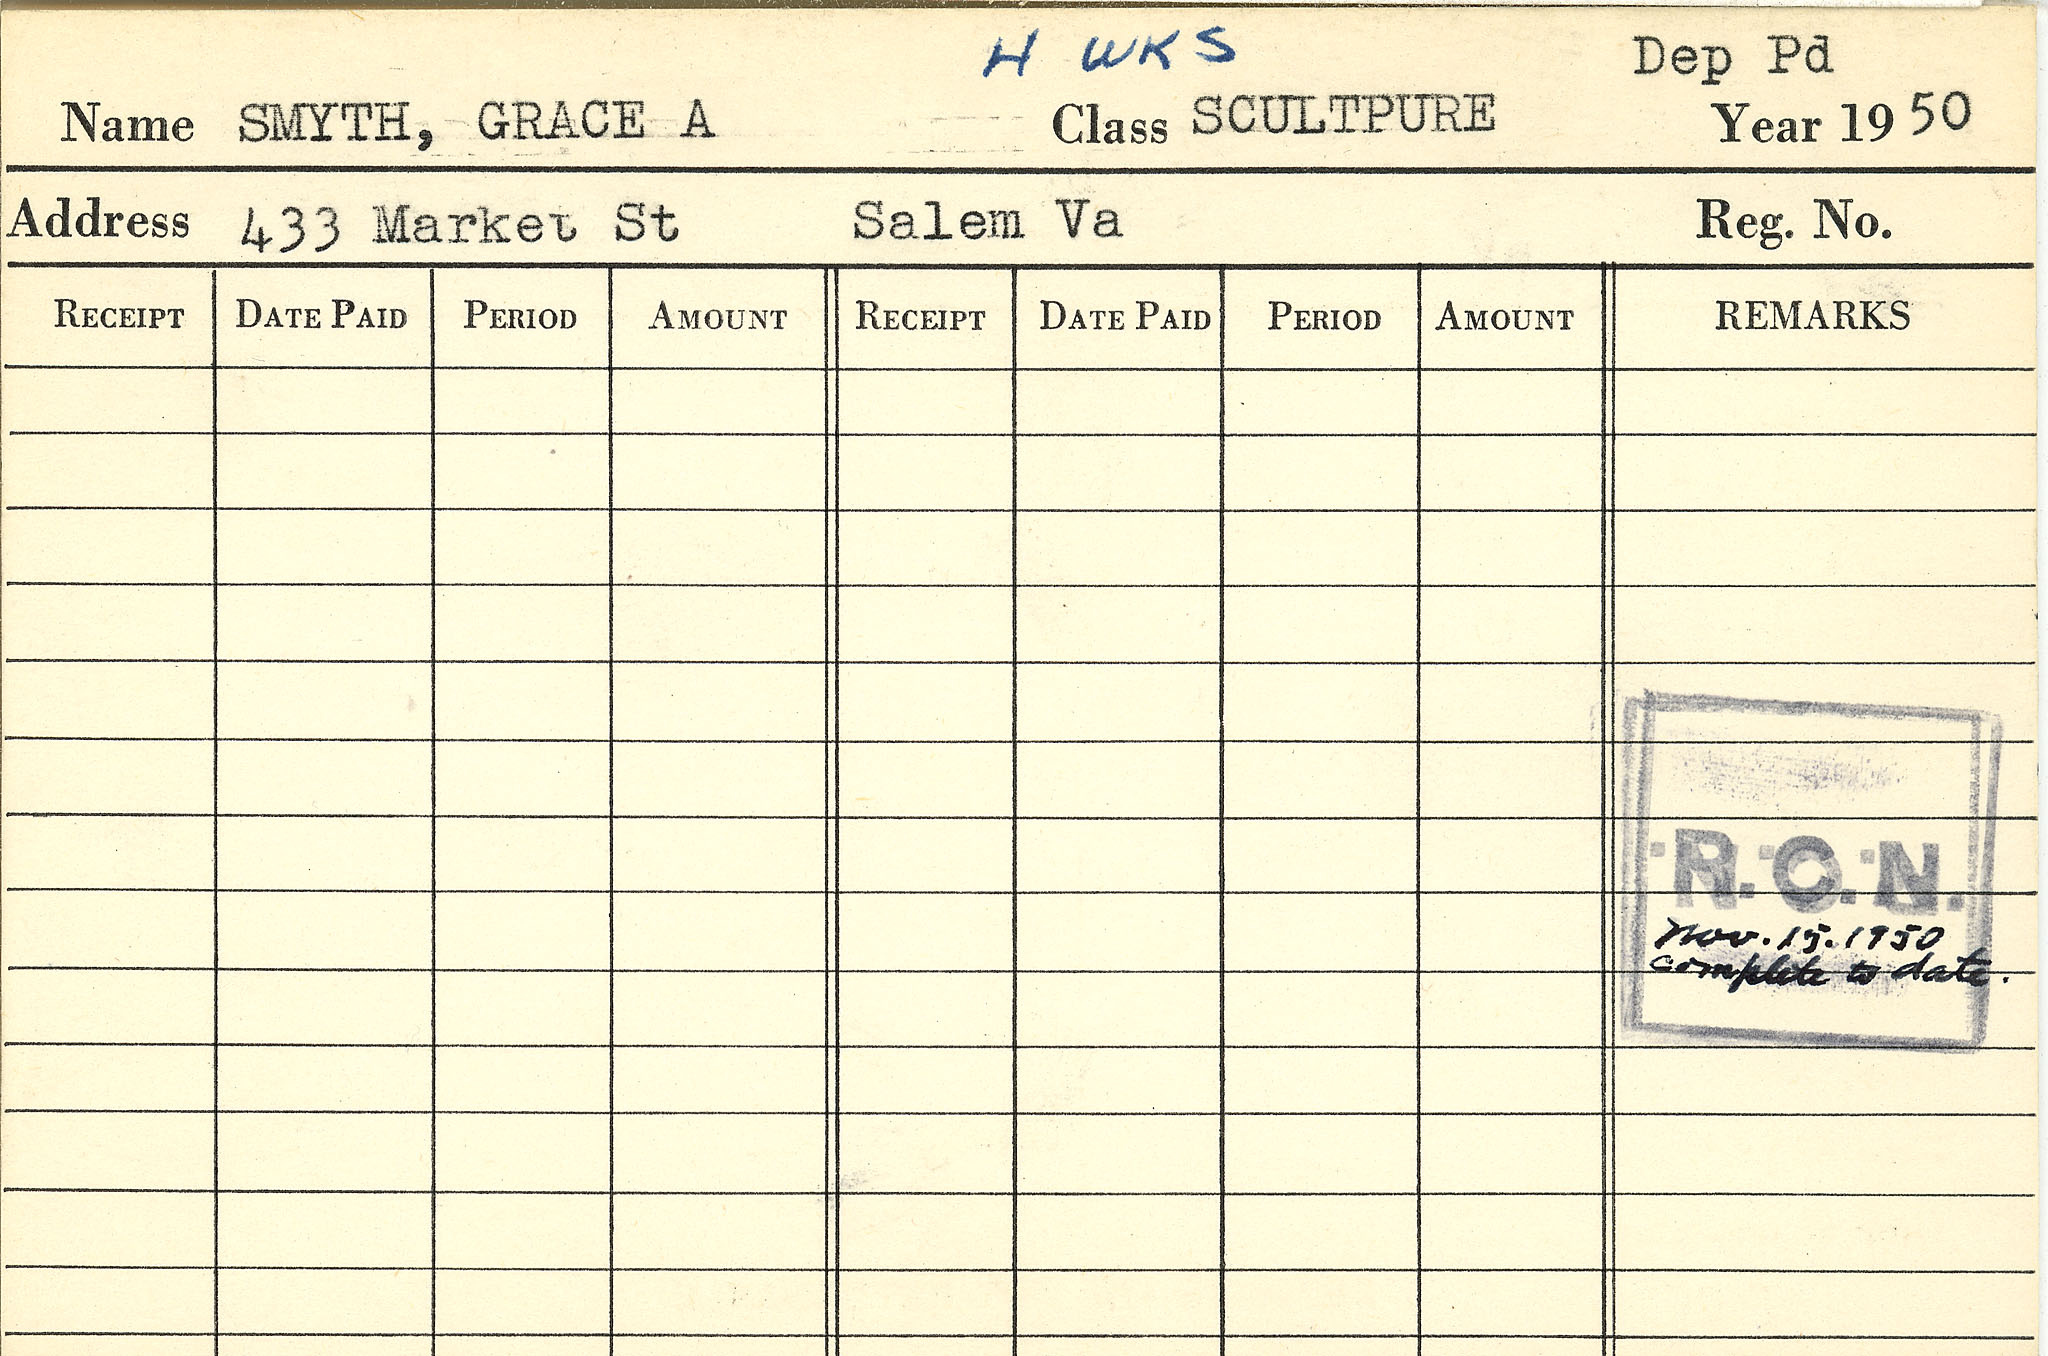 4 WKS
Dep Pd
Name SMYTH, GRACE A Class SCULTPURE Year 19 50
Address 433 Market St Salem Va Reg. No.
RECEIPT DATE PAID PERIOD AMOUNT RECEIPT DATE PAID PERIOD AMOUNT REMARKS
R.C.N.
Nov. 15. 1950
complete to date.